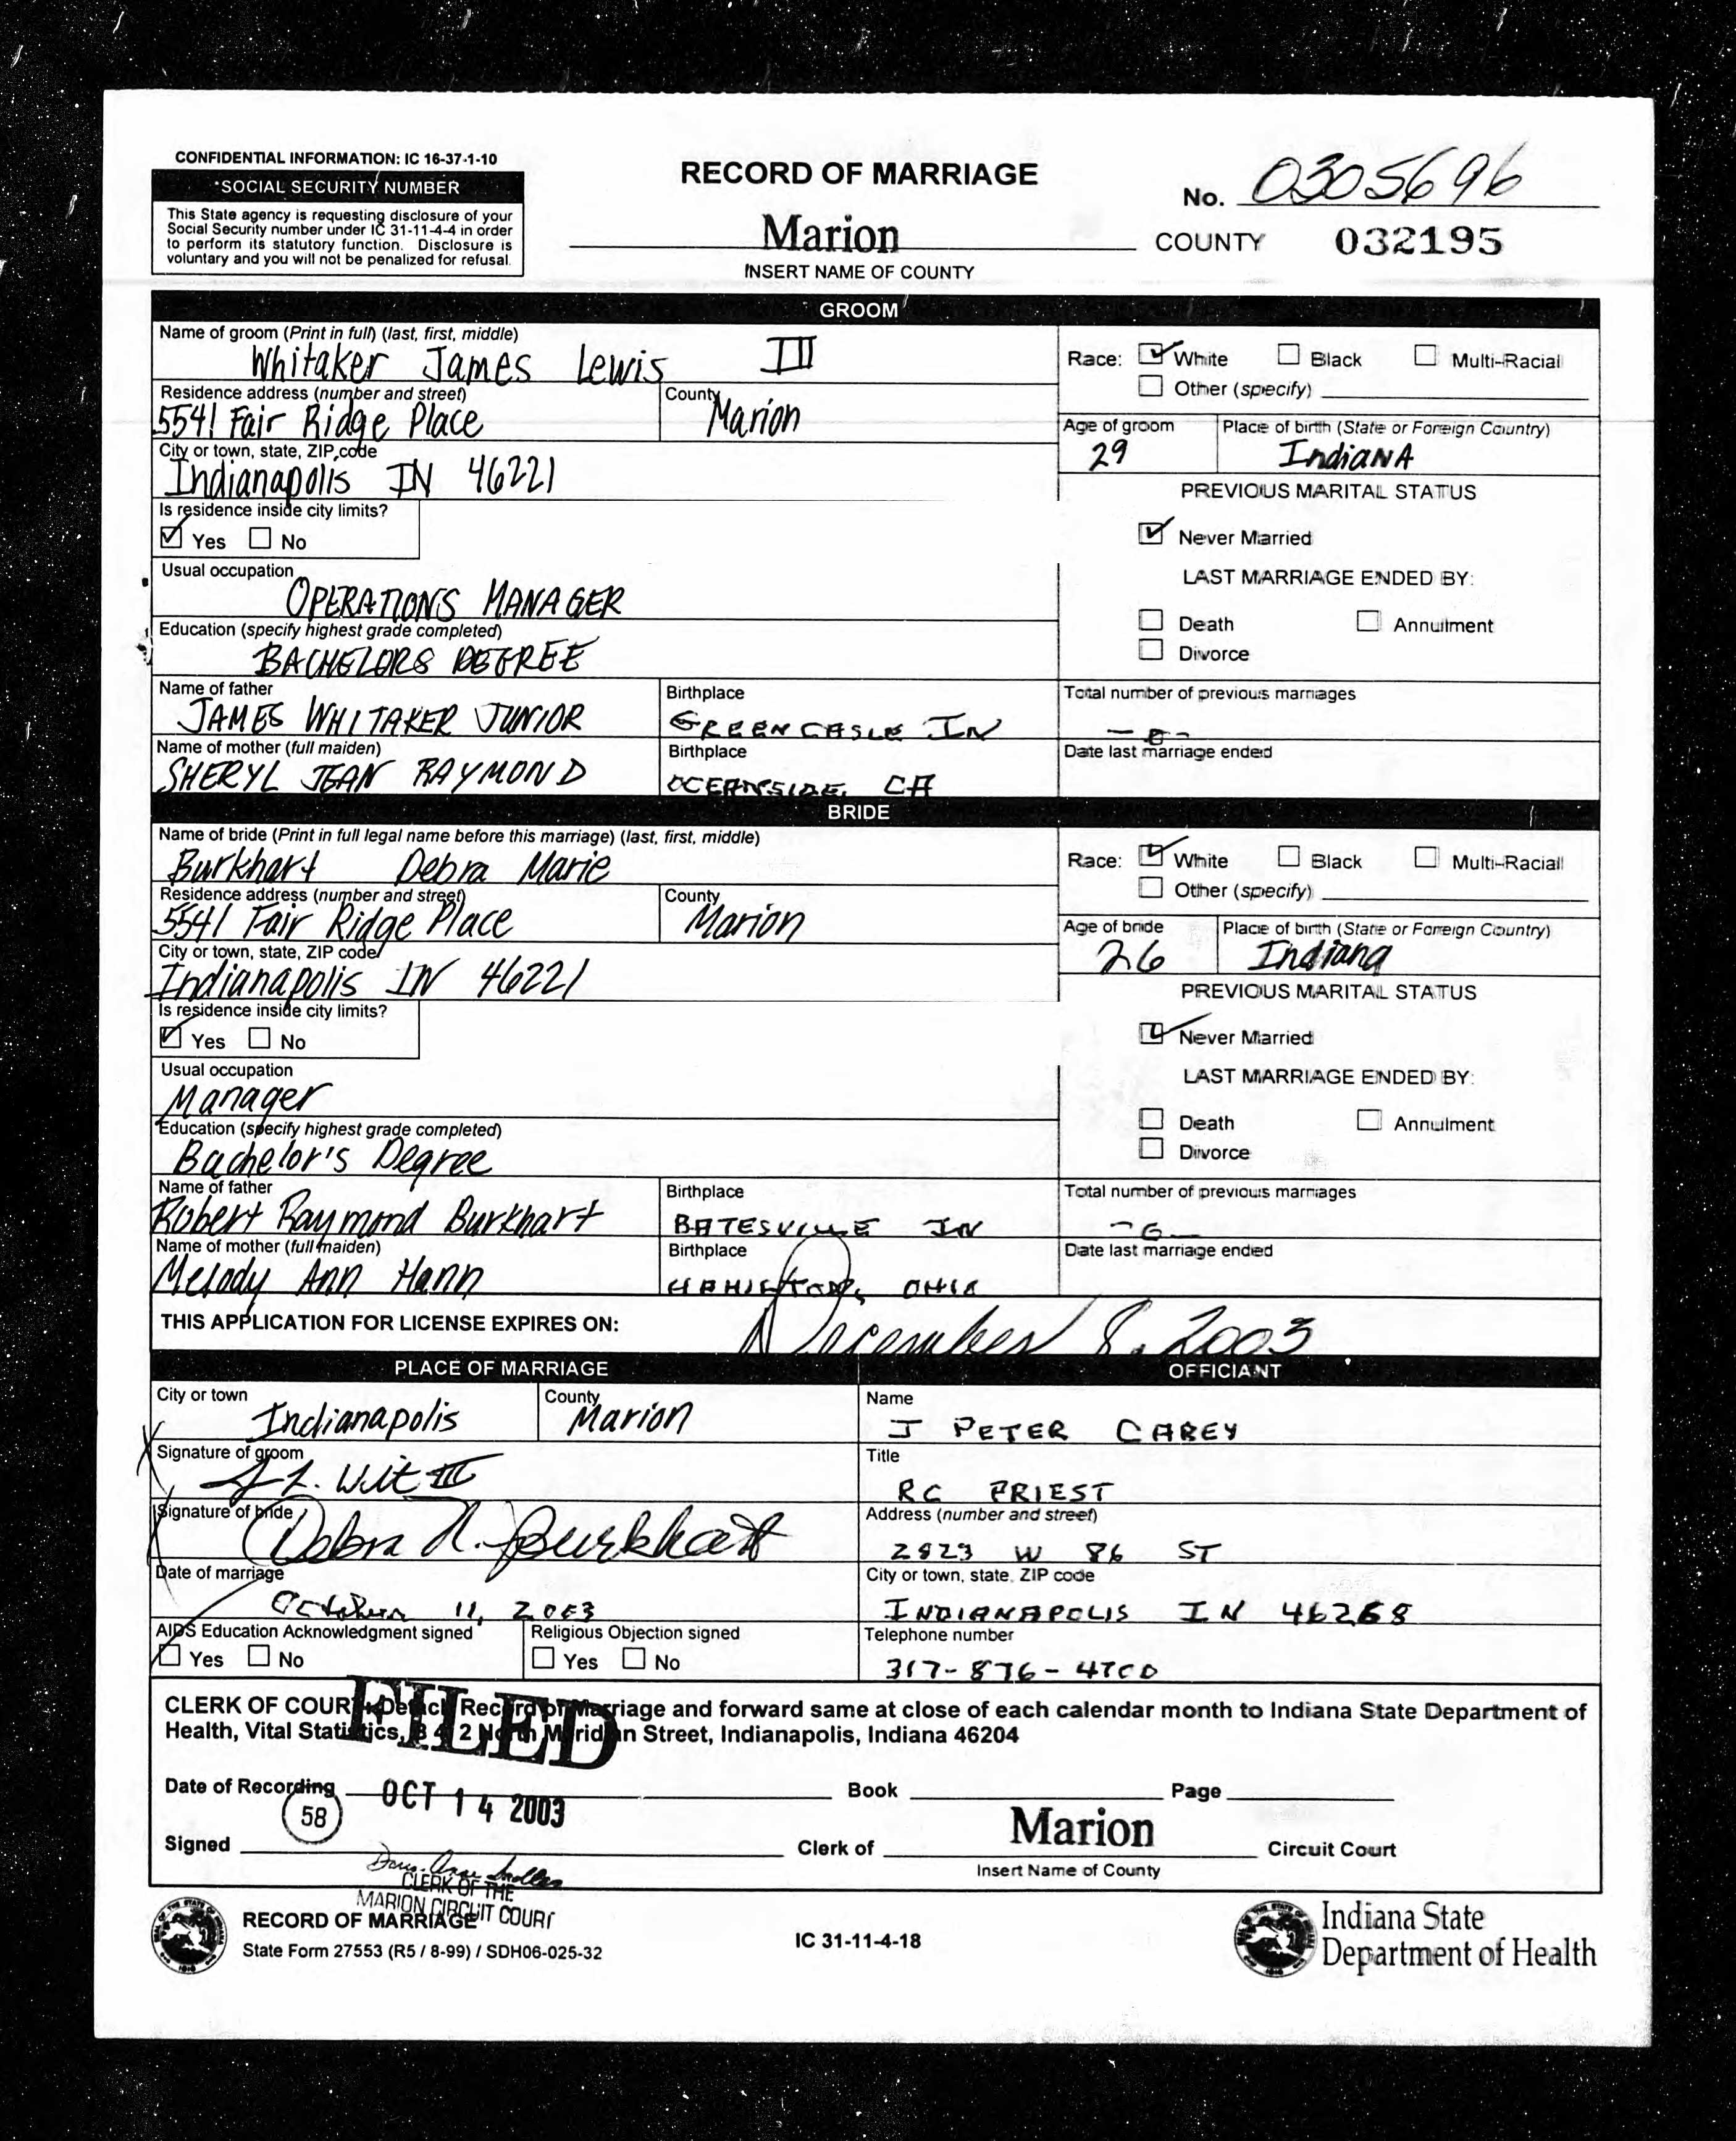 CONFIDENTIAL INFORMATION: IC 16-37-1-10
*SOCIAL SECURITY NUMBER
This State agency is requesting disclosure of your
Social Security number under IC 31-11-4-4 in order
to perform its statutory function. Disclosure is
voluntary and you will not be penalized for refusal.
RECORD OF MARRIAGE
No. 0305696
Marion COUNTY 032195
INSERT NAME OF COUNTY
GROOM
Name of groom (Print in full) (last, first, middle)
Whitaker James Lewis III
Race: White Black Multi-Racial
Other (specify)
Residence address (number and street) County
5541 Fair Ridge Place Marion
Age of groom Place of birth (State or Foreign Country)
29 IndiaNA
City or town, state, ZIP code
Indianapolis IN 46221
PREVIOUS MARITAL STATUS
Is residence inside city limits?
Yes No
Never Married
Usual occupation
OPERATIONS MANAGER
LAST MARRIAGE ENDED BY:
Death Annulment
Divorce
Education (specify highest grade completed)
BACHELORS DEGREE
Name of father Birthplace Total number of previous marriages
JAMES WHITAKER JUNIOR GREENCASLE IN -0-
Name of mother (full maiden) Birthplace Date last marriage ended
SHERYL JEAN RAYMOND OCEANSIDE, CA
BRIDE
Name of bride (Print in full legal name before this marriage) (last, first, middle)
Burkhart Debra Marie
Race: White Black Multi-Racial
Other (specify)
Residence address (number and street) County
5541 Fair Ridge Place Marion
Age of bride Place of birth (State or Foreign Country)
26 Indiana
City or town, state, ZIP code
Indianapolis IN 46221
PREVIOUS MARITAL STATUS
Is residence inside city limits?
Yes No
Never Married
Usual occupation
Manager
LAST MARRIAGE ENDED BY:
Death Annulment
Divorce
Education (specify highest grade completed)
Bachelor's Degree
Name of father Birthplace Total number of previous marriages
Robert Raymond Burkhart BATESVILLE IN -0-
Name of mother (full maiden) Birthplace Date last marriage ended
Melody Ann Hann HAMILTON, OHIO
THIS APPLICATION FOR LICENSE EXPIRES ON: December 8, 2003
PLACE OF MARRIAGE OFFICIANT
City or town County Name
Indianapolis Marion J PETER CAREY
Signature of groom Title
RC PRIEST
Signature of bride Address (number and street)
Debra M. Burkhart W 86 ST
Date of marriage City or town, state, ZIP code
October 11, 2003 INDIANAPOLIS IN 46268
AIDS Education Acknowledgment signed Religious Objection signed Telephone number
Yes No Yes No 317-876-4700
CLERK OF COURT: Detach Record of Marriage and forward same at close of each calendar month to Indiana State Department of
Health, Vital Statistics, North Meridian Street, Indianapolis, Indiana 46204
FILED
Date of Recording OCT 14 2003 Book Page
58
Signed Clerk of Marion Circuit Court
Insert Name of County
CLERK OF THE
MARION CIRCUIT COURT
RECORD OF MARRIAGE
State Form 27553 (R5 / 8-99) / SDH06-025-32
IC 31-11-4-18
Indiana State
Department of Health